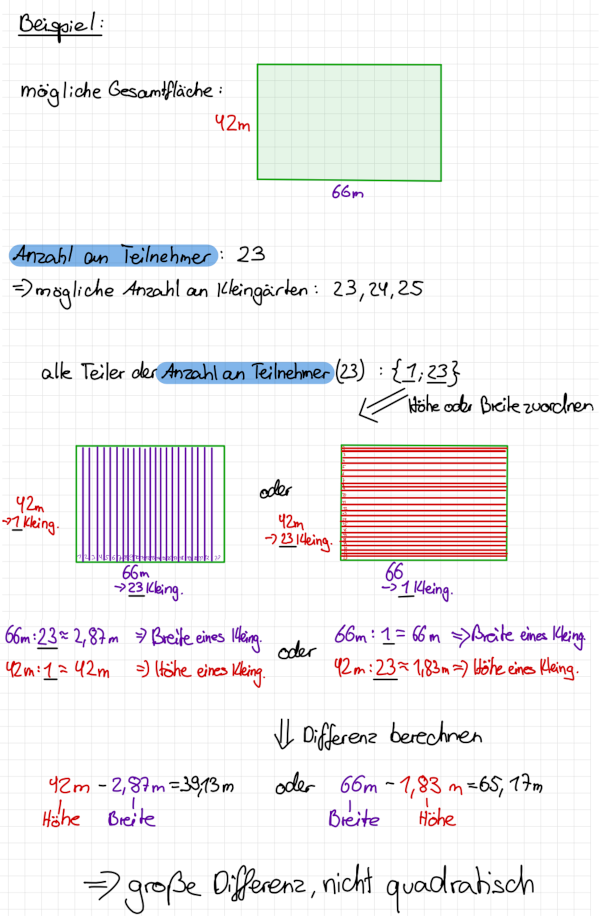 Beispiel:
mögliche Gesamtfläche:
42m
66m
Anzahl an Teilnehmer: 23
=> mögliche Anzahl an Kleingärten: 23, 24, 25
alle Teiler der Anzahl an Teilnehmer (23) : {1; 23}
Höhe oder Breite zuordnen
42m
→ 1 Kleing.
66m
→ 23 Kleing.
oder
42m
→ 23 Kleing.
66
→ 1 Kleing.
66m : 23 ≈ 2,87m => Breite eines Kleing.
42m : 1 = 42m => Höhe eines Kleing.
oder
66m : 1 = 66m => Breite eines Kleing.
42m : 23 ≈ 1,83m => Höhe eines Kleing.
Differenz berechnen
42m - 2,87m = 39,13m
Höhe Breite
oder
66m - 1,83 m = 65,17m
Breite Höhe
=> große Differenz, nicht quadratisch